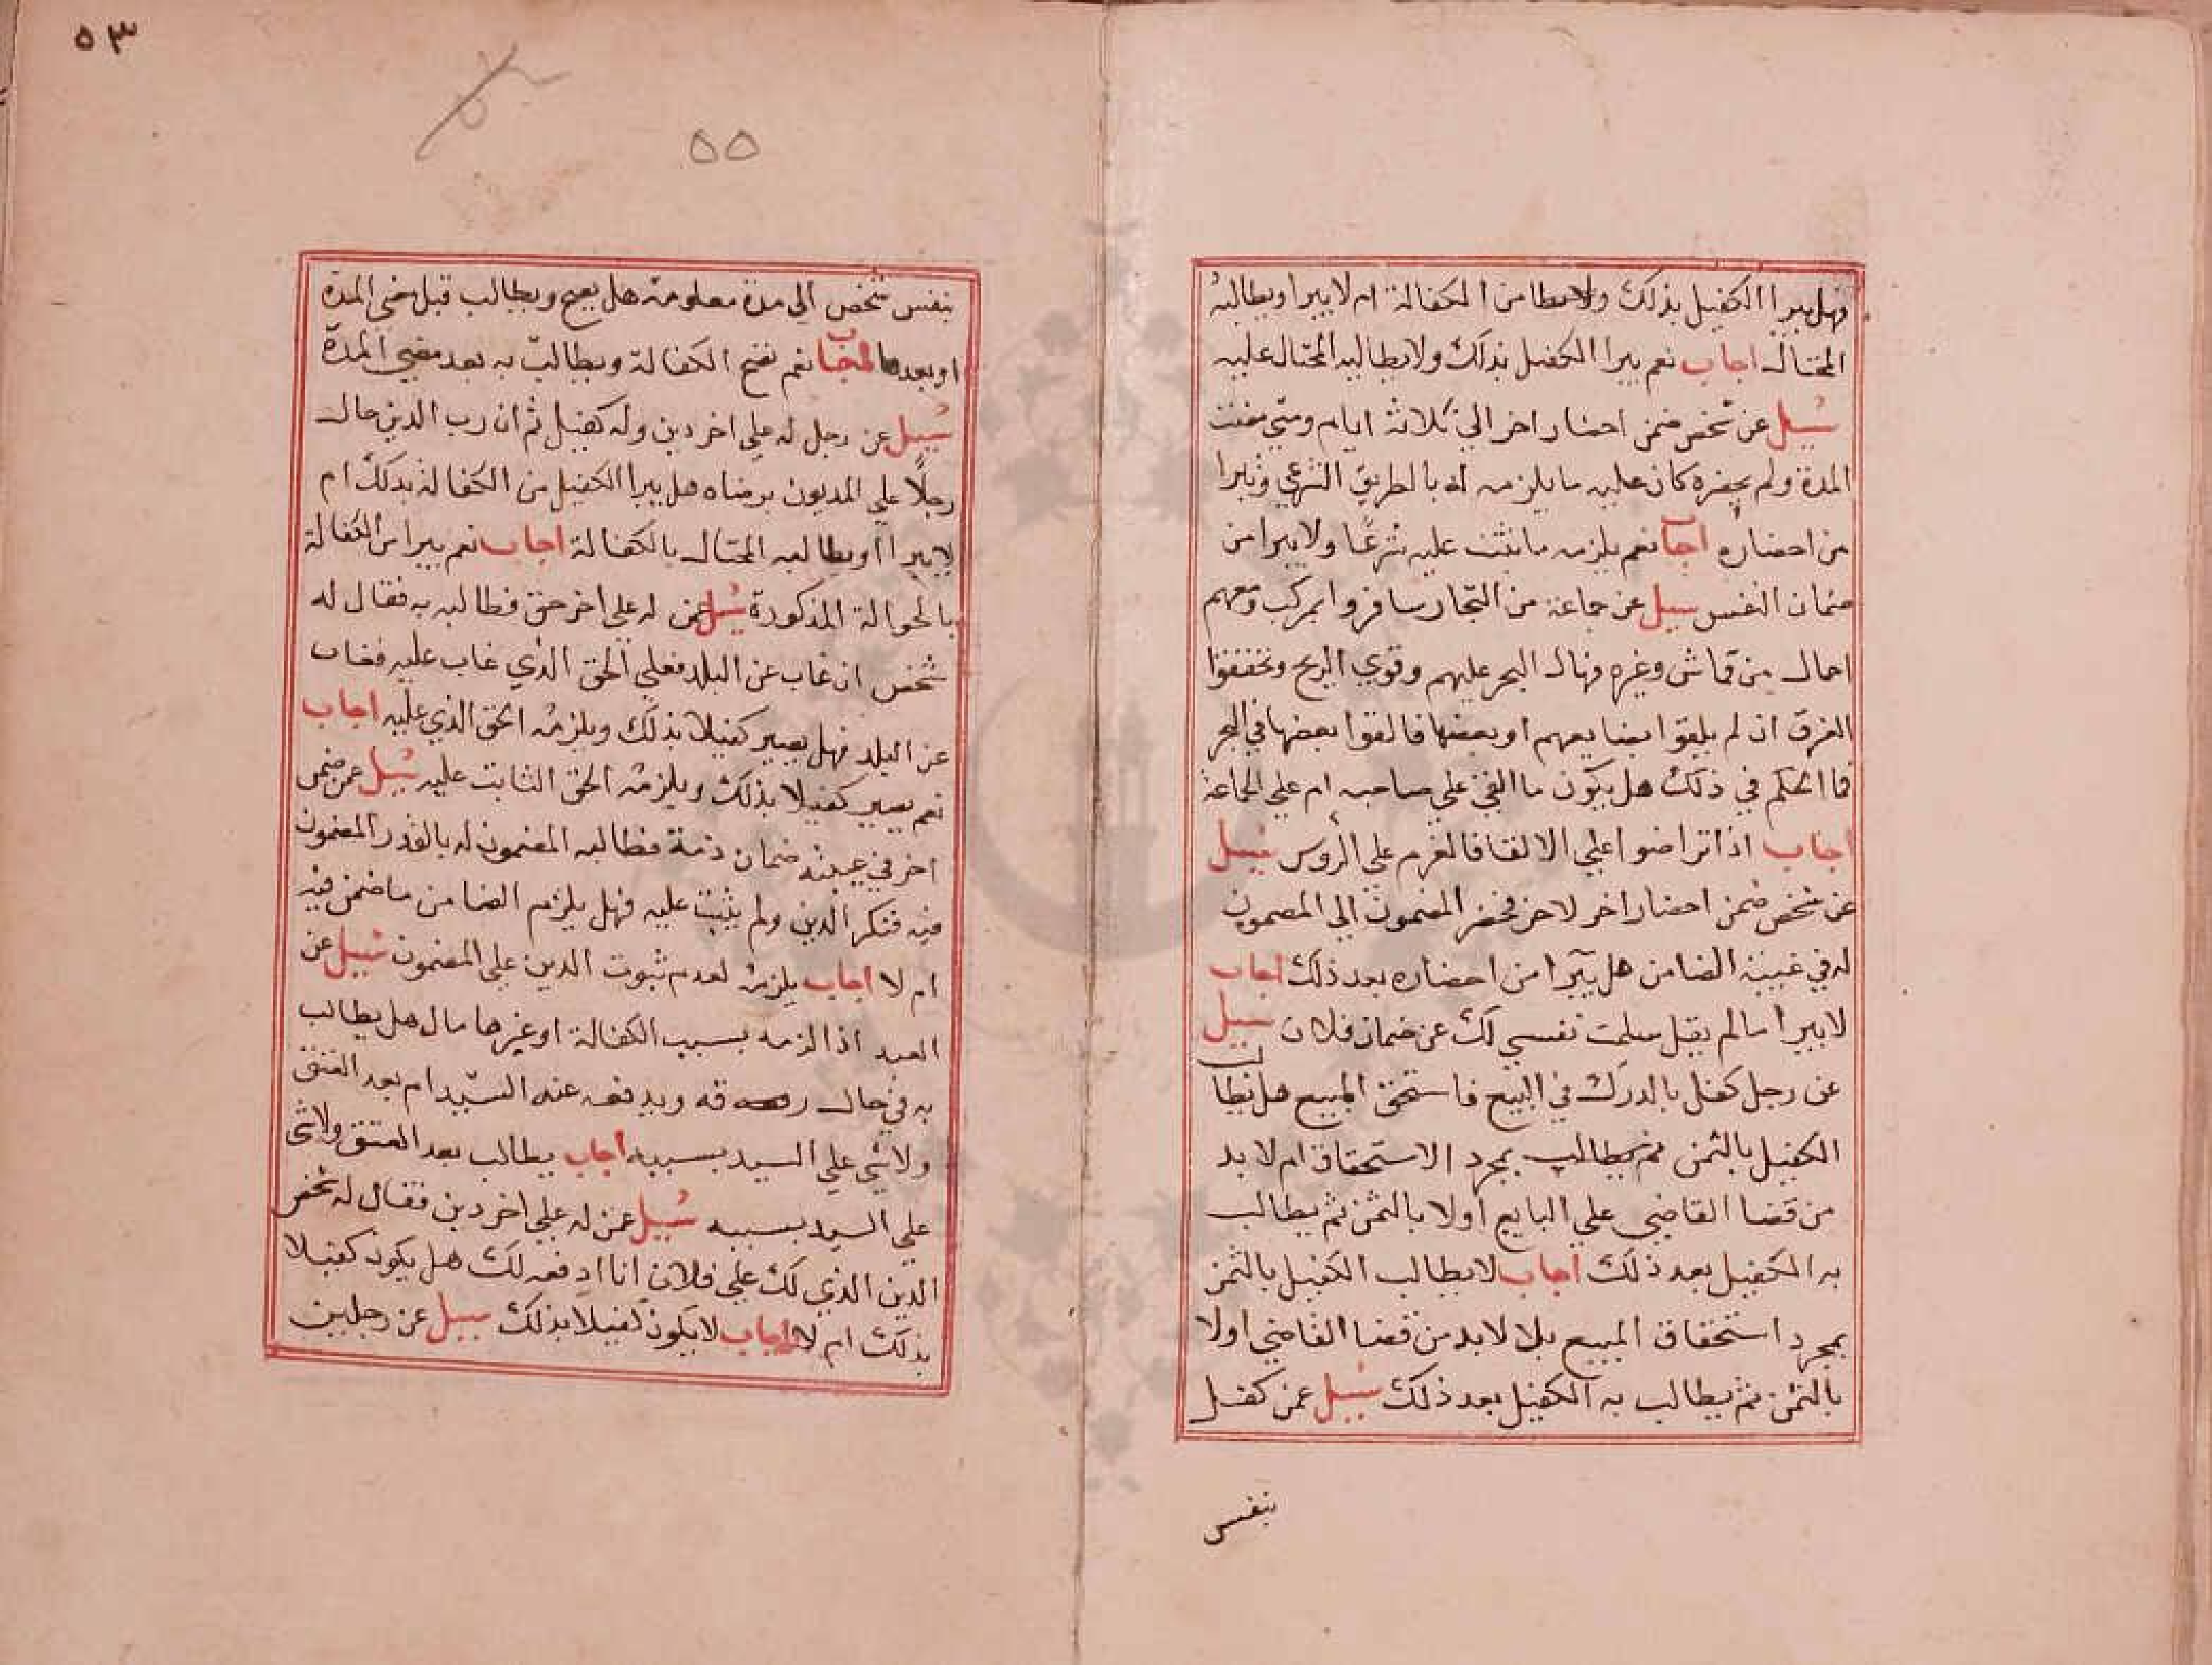 فهل يبرا الكفيل بذلك ولا يطا من الكفالة ام لا يبرا ويطالبه
المحتال اجاب نعم يبرا الكفيل بذلك ولا يطالبه المحتال عليه
سيل عن شخص ضمن احضار اخر الي ثلاثة ايام ومتي مضت
المدة ولم يحضره كان عليه ما يلزمه له بالطريق الشرعي وتبرا
من احضاره اجاب نعم يلزمه ما يثبت عليه شرعًا ولا يبرا من
ضمان النفس سيل عن جماعة من التجار سافروا بمركب ومعهم
احمال من قماش وغيره فهال البحر عليهم وقوي الريح وتحققوا
الغرق ان لم يلقوا بضايعهم او بعضها فالقوا بعضها في البحر
فما الحكم في ذلك هل يكون ما القي علي صاحبه ام علي الجماعة
اجاب اذا تراضوا علي الالقا فالغرم علي الروس سيل
عن شخص ضمن احضار اخر لاخر فحضر المضمون الي المضمون
له في غيبة الضامن هل يبرا من احضاره بعد ذلك اجاب
لا يبرا ما لم يقل سلمت نفسي لك عن ضمان فلان سيل
عن رجل كفل بالدرك في البيع فاستحق المبيع هل يطالب
الكفيل بالثمن بمجرد الاستحقاق ام لا بد
من قضا القاضي علي البايع اولا بالثمن ثم يطالب
به الكفيل بعد ذلك اجاب لا يطالب الكفيل بالثمن
بمجرد استحقاق المبيع بلا لا بد من قضا القاضي اولا
بالثمن ثم يطالب به الكفيل بعد ذلك سيل عمن كفل
بنفس
٥٣
٥٥
بنفس شخص الي مدة معلومة هل يصح ويطالب قبل مضي المدة
او بعدها اجاب نعم تصح الكفالة ويطالب به بعد مضي المدة
سيل عن رجل له علي اخر دين وله كفيل ثم ان رب الدين حال
رجلًا علي المديون برضاه هل يبرا الكفيل من الكفالة بذلك ام
لا يبرا او يطالبه المحتال بالكفالة اجاب نعم يبرا من الكفالة
بالحوالة المذكورة سيل عمن له علي اخر حق فطالبه به فقال له
شخص ان غاب عن البلد فعلي الحق الذي غاب عليه فغاب
عن البلد فهل يصير كفيلا بذلك ويلزمه الحق الذي عليه اجاب
نعم يصير كفيلا بذلك ويلزمه الحق الثابت عليه سيل عمن ضمن
اخر في غيبته ضمان ذمة فطالبه المضمون له بالقدر المضمون
فيه فنكر الدين ولم يثبت عليه فهل يلزم الضامن ما ضمن فيه
ام لا اجاب يلزمه لعدم ثبوت الدين علي المضمون سيل عن
العبد اذا لزمه بسبب الكفالة او غيرها مال هل يطالب
به في حال رقه ويدفعه عنه السيد ام بعد العتق
ولا شي علي السيد بسببه اجاب يطالب بعد العتق ولا شي
علي السيد بسببه سيل عمن له علي اخر دين فقال له شخص
الدين الذي لك علي فلان انا ادفعه لك هل يكون كفيلا
بذلك ام لا اجاب لا يكون كفيلا بذلك سيل عن رجلين